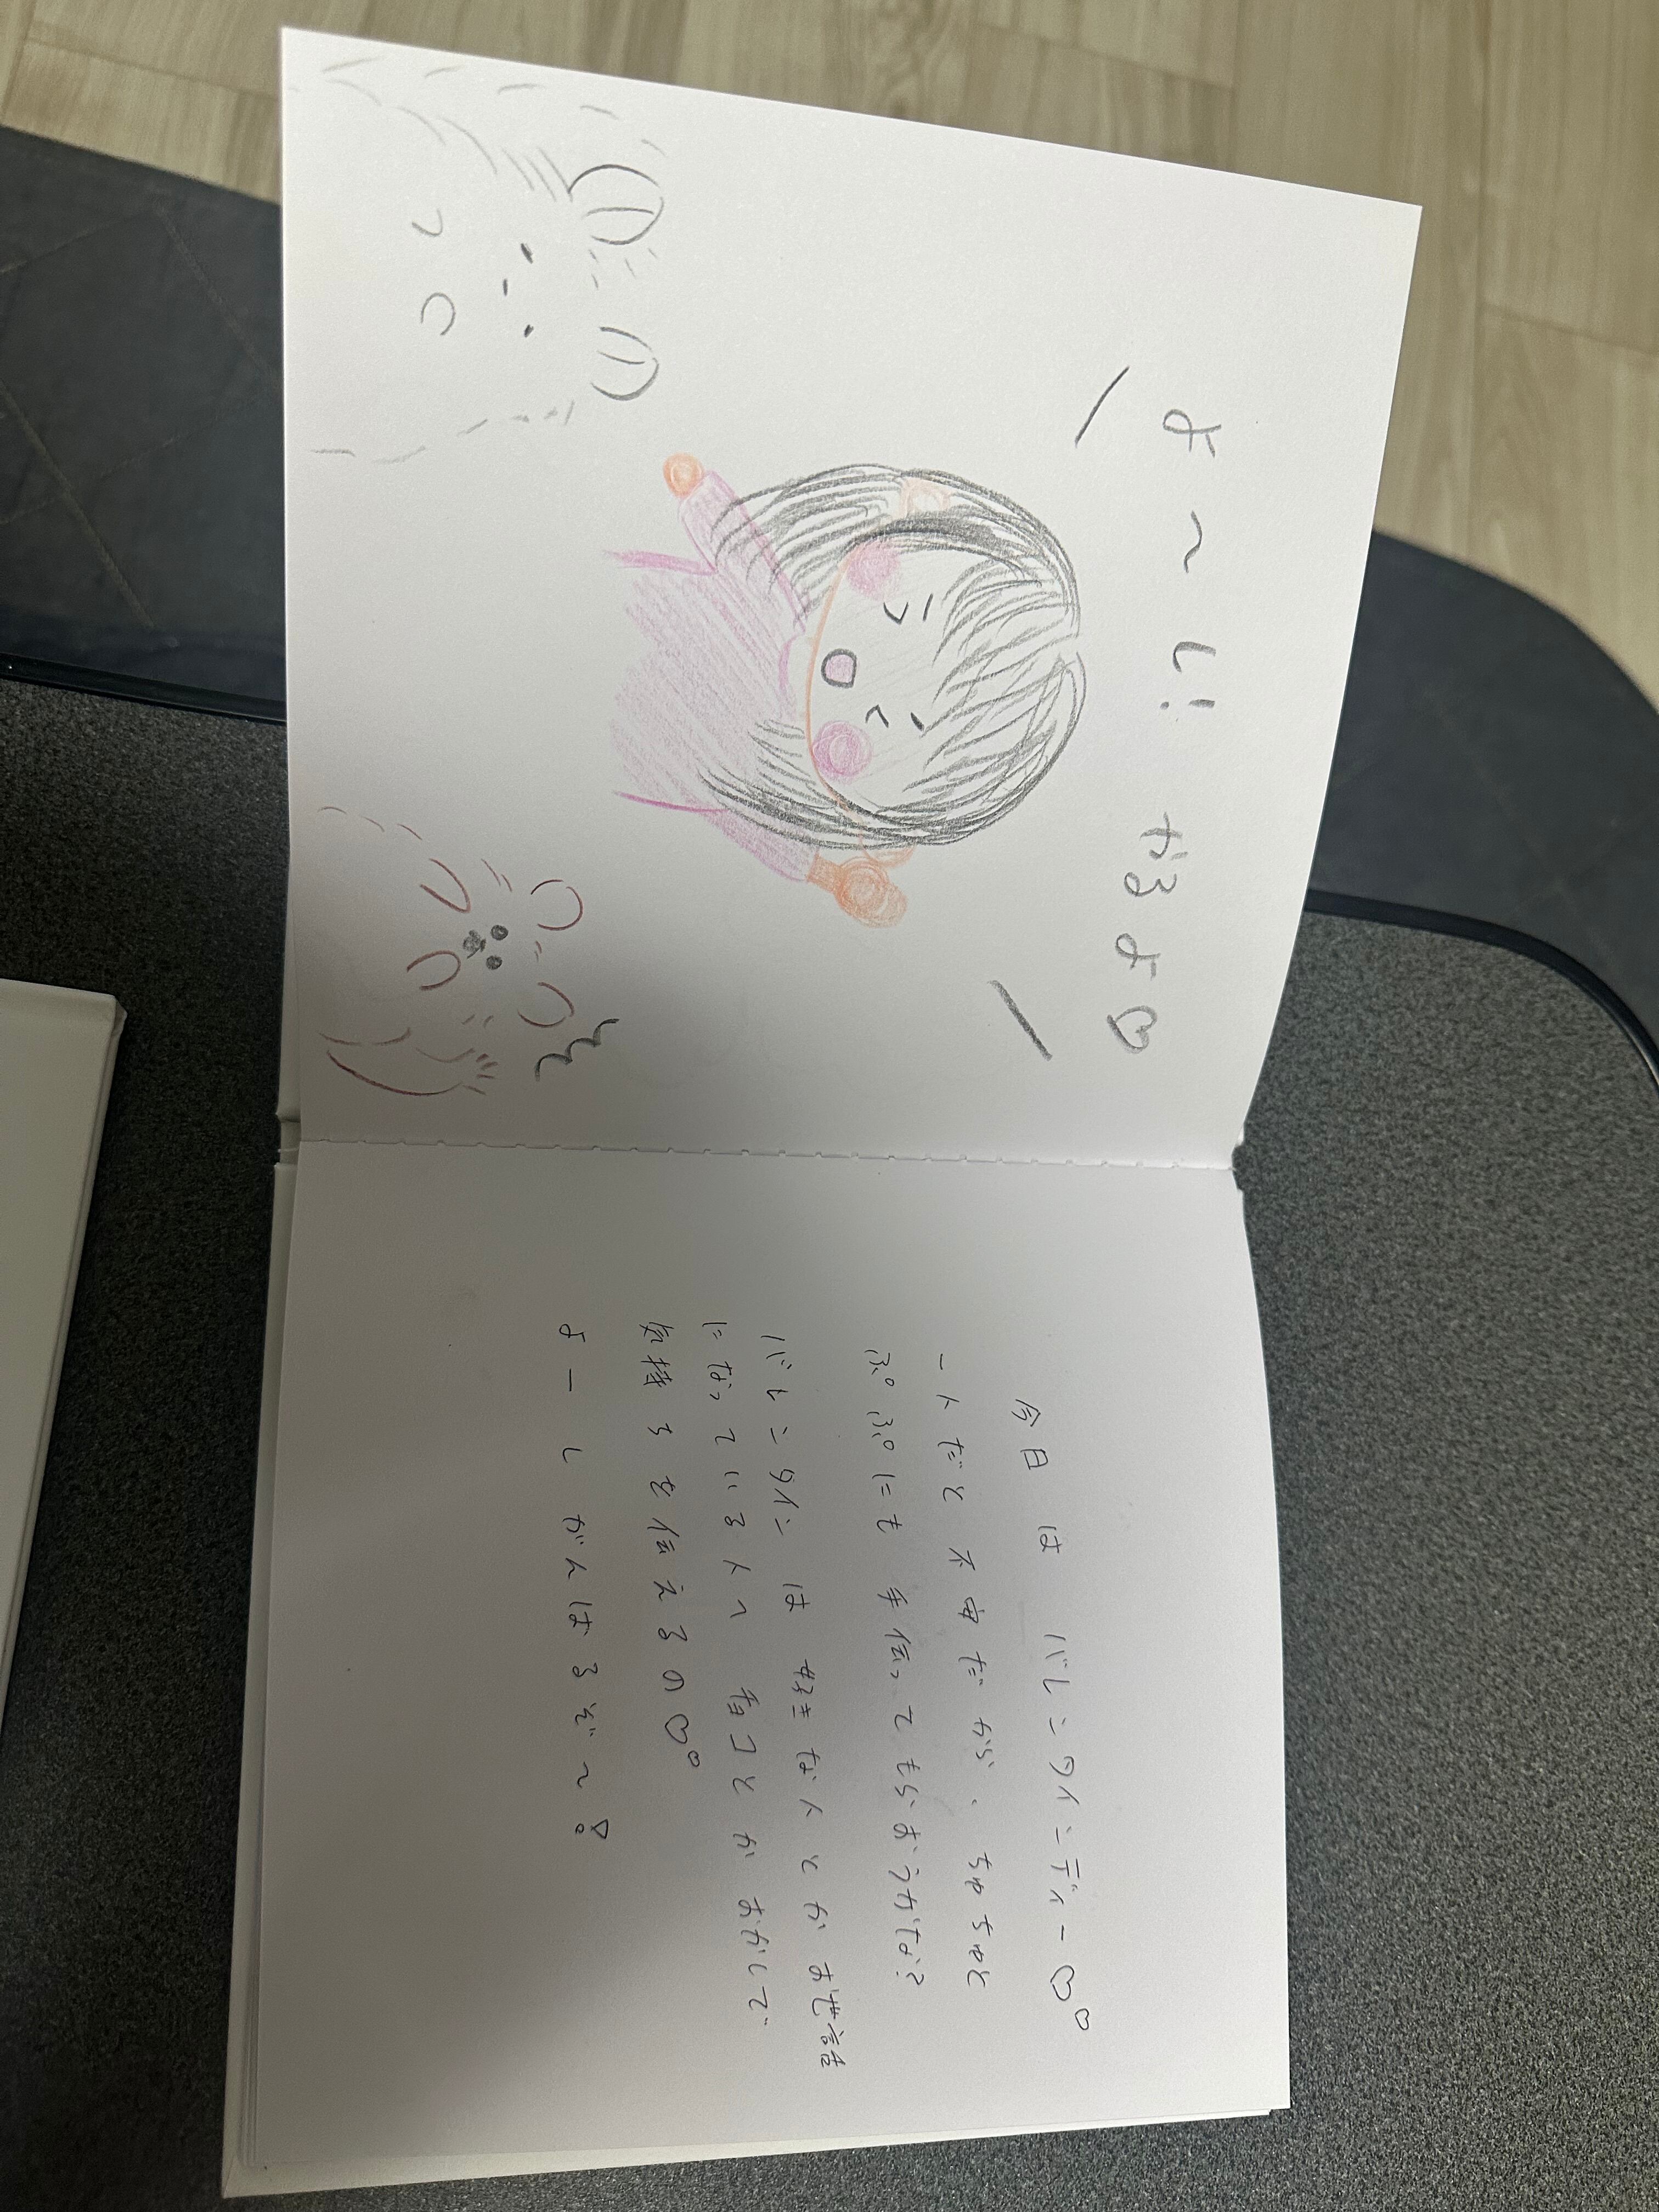 よ〜し! やるよ♡
今日は バレンタインデー♡
一人だと不安だから、ちゃちゃと
ぷぷにも手伝ってもらおうかな?
バレンタインは 好きな人とか お世話
になっている人に チョコとか おかしで
気持ちを伝えるの♡
よーし がんばるぞ〜!